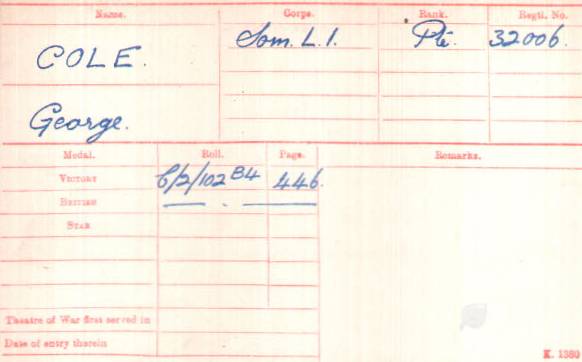 Name. Corps. Rank. Regtl. No.
COLE. Som. L.I. Pte. 32006.
George.
Medal. Roll. Page. Remarks.
VICTORY 6/2/102 B4 446.
BRITISH
STAR
Theatre of War first served in
Date of entry therein
K. 1380